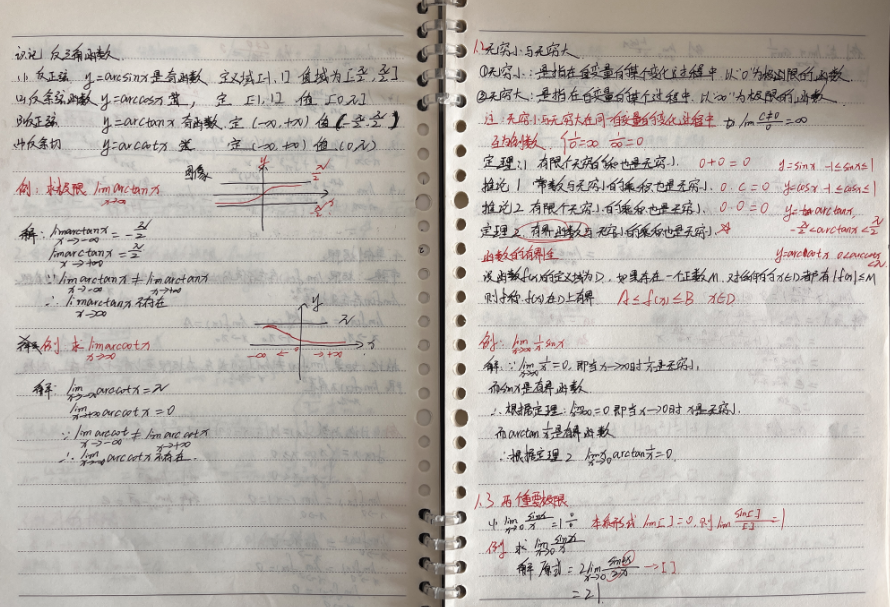 识记 反三角函数
(1) 反正弦 y=arcsinx是有函数 定义域[-1,1] 值域为[-π/2,π/2]
(2)反余弦函数 y=arccosx 定 [-1,1] 值 [0,π]
(3)反正弦 y=arctanx 有函数 定 (-∞,+∞) 值(-π/2,π/2)
(4)反余切 y=arccotx 定 (-∞,+∞) 值 (0,π)
图像 y π/2
例: 求极限 lim x→∞ arctanx
x
解: lim x→-∞ arctanx = -π/2
lim x→+∞ arctanx = π/2
∵ lim x→-∞ arctanx ≠ lim x→+∞ arctanx
∴ lim x→∞ arctanx 不存在
y
π
例 求 lim x→∞ arccotx
-∞ ← 0 → +∞ x
解: lim x→-∞ arccotx = π
lim x→+∞ arccotx = 0
∵ lim x→-∞ arccot ≠ lim x→+∞ arccotx
∴ lim x→∞ arccotx 不存在.
无穷小与无穷大
①无穷小: 是指在自变量的某个变化过程中 以"0"为极限的函数.
②无穷大: 是指在自变量的某个过程中. 以"∞"为极限的函数
注: 无穷小与无穷大在同一自变量的变化过程中 lim C≠0/0 = ∞
互为倒数. 1/0=∞ 1/∞=0
定理: 1 有限个无穷小的和也是无穷小. 0+0=0 y=sinx -1≤sinx≤1
推论1 常数与无穷小的乘积也是无穷小. 0·C=0 y=cosx -1≤cosx≤1
推论2 有限个无穷小的乘积也是无穷小. 0·0=0 y=arctanx,
定理2. 有界函数与无穷小的乘积也是无穷小. -π/2<arctanx<π/2
函数的有界性 y=arccotx 0<arccotx<π
设函数f(x)的定义域为D, 如果存在一个正数M, 对任何的x∈D都有|f(x)|≤M
则称 f(x)在D上有界 A≤f(x)≤B x∈D
例: lim x→∞ 1/x sinx
解: ∵ lim x→∞ 1/x =0, 即当x→∞时1/x是无穷小,
而sinx是有界函数
∴ 根据定理: =0 即当x→0时 x是无穷小,
而arctan 1/x是有界函数
∴根据定理2 lim x→0 x arctan 1/x =0.
1.3 两个重要极限
(1) lim x→0 sinx/x =1 0/0 本质形式 lim[ ]=0, 则 lim sin[ ]/[ ] =1
例 求 lim x→0 sin2x/x
解 原式=2 lim x→0 sin2x/2x → [ ]
=2